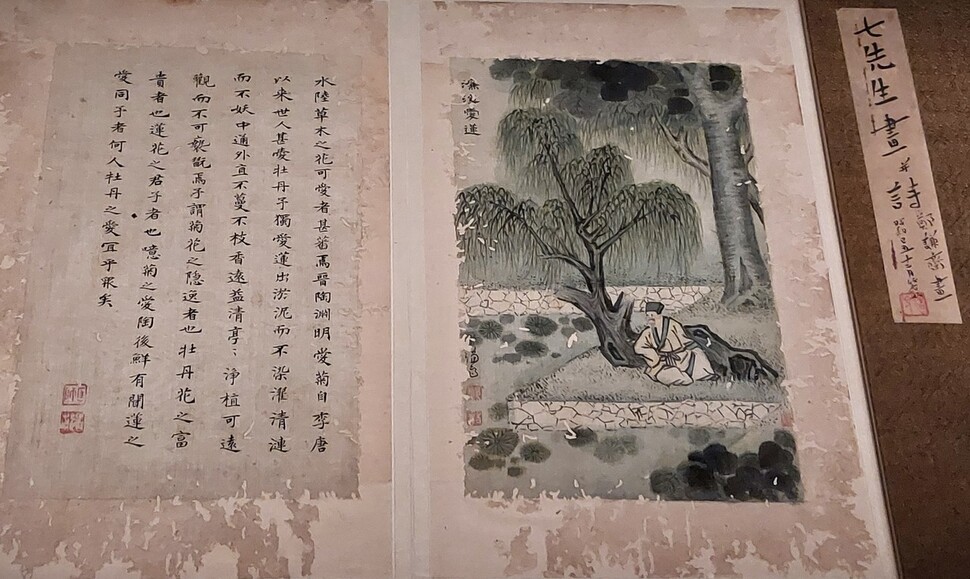 七先生畫
并
詩
濂溪愛蓮
水陸草木之花可愛者甚蕃焉晉陶淵明愛菊自李唐
以来世人甚愛牡丹予獨愛蓮出淤泥而不染濯清漣
而不妖中通外直不蔓不枝香遠益清亭〻淨植可遠
觀而不可褻翫焉予謂菊花之隠逸者也牡丹花之富
貴者也蓮花之君子者也噫菊之愛陶後鮮有聞蓮之
愛同予者何人牡丹之愛宜乎衆矣